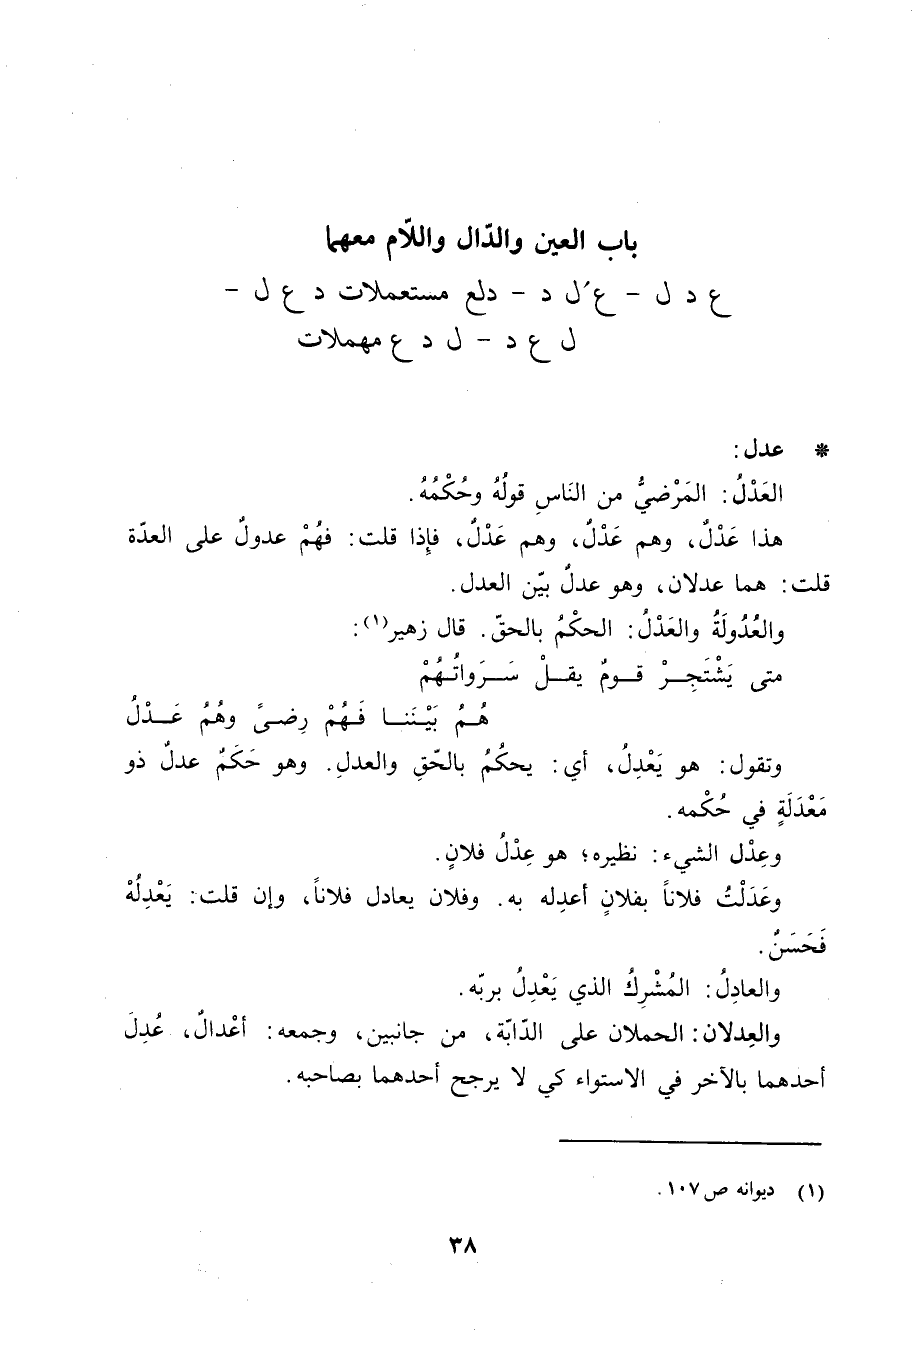 باب العين والدّال واللّام معهما
ع د ل – ع ل د – دلع مستعملات د ع ل –
ل ع د – ل د ع مهملات
* عدل:
العَدْلُ: المَرْضيُّ من النَاسِ قولُهُ وحُكْمُهُ.
هذا عَدْلٌ، وهم عَدْلٌ، وهم عَدْلٌ، فإِذا قلت: فهُمْ عدولٌ على العدّة
قلت: هما عدلان، وهو عدلٌ بيّن العدل.
والعُدُولَةُ والعَدْلُ: الحكْمُ بالحقّ. قال زهير(١):
متى يَشْتَجِرْ قومٌ يقلْ سَرَواتُهُمْ
هُمُ بَيْنَنا فَهُمْ رِضىً وهُمُ عَدْلُ
وتقول: هو يَعْدِلُ، أي: يحكُمُ بالحّقِ والعدلِ. وهو حَكَمٌ عدلٌ ذو
مَعْدَلَةٍ في حُكْمه.
وعِدْل الشيء: نظيره؛ هو عِدْلُ فلانٍ.
وعَدَلْتُ فلاناً بفلانٍ أعدِله به. وفلان يعادل فلاناً، وإن قلت: يَعْدِلُهْ
فَحَسَنٌ.
والعادِلُ: المُشْرِكُ الذي يَعْدِلُ بربّه.
والعِدلان: الحملان على الدّابّة، من جانبين، وجمعه: أعْدالٌ، عُدِلَ
أحدهما بالآخر في الاستواء كي لا يرجح أحدهما بصاحبه.
(١) ديوانه ص ١٠٧.
٣٨